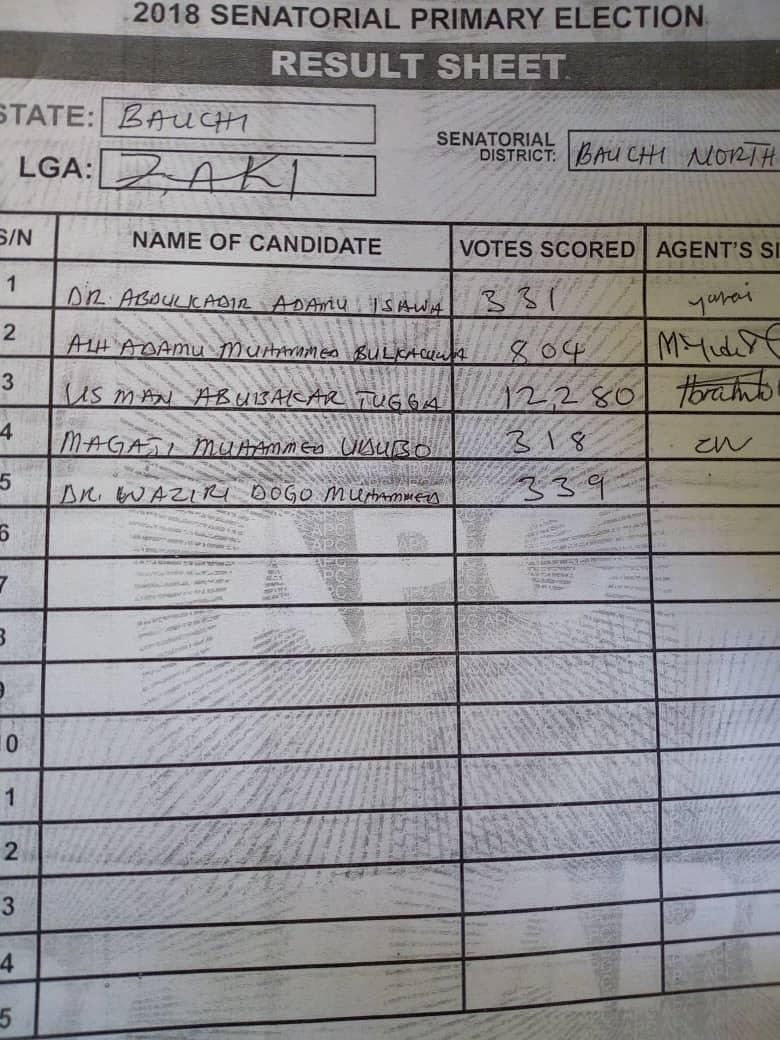 2018 SENATORIAL PRIMARY ELECTION
RESULT SHEET
STATE: BAUCHI
SENATORIAL DISTRICT: BAUCHI NORTH
LGA: ZAKI
S/N NAME OF CANDIDATE VOTES SCORED AGENT'S SI
1 DR. ABDULKADIR ADAMU ISAWA 331
2 ALH ADAMU MUHAMMED BULKACHUWA 804
3 USMAN ABUBAKAR TUGGA 12,280
4 MAGAJI MUHAMMED UBUBO 318
5 DR. WAZIRI DOGO MUHAMMED 339
6
7
8
9
0
1
2
3
4
5
APC